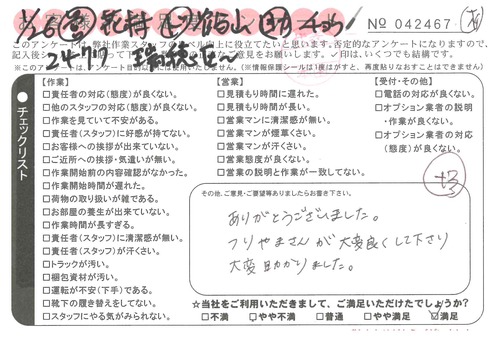 No 042467
このアンケートは、弊社作業スタッフのレベル向上に役立てたいと思います。否定的なアンケートになりますので、
【作業】
□責任者の対応(態度)が良くない。
□他のスタッフの対応(態度)が良くない。
□作業を見ていて不安がある。
□責任者(スタッフ)に好感が持てない。
□お客様への挨拶が出来ていない。
□ご近所への挨拶・気遣いが無い。
□作業開始前の内容確認がなかった。
□作業開始時間が遅れた。
□荷物の取り扱いが雑である。
□お部屋の養生が出来ていない。
□作業時間が長すぎる。
□責任者(スタッフ)に清潔感が無い。
□責任者(スタッフ)が汗くさい。
□トラックが汚い。
□梱包資材が汚い。
□運転が不安(下手)である。
□靴下の履き替えをしてない。
□スタッフにやる気がみられない。
【営業】
□見積もり時間に遅れた。
□見積もり時間が長い。
□営業マンに清潔感が無い。
□営業マンが煙草くさい。
□営業マンが汗くさい。
□営業態度が良くない。
□営業の説明と作業が一致してない。
【受付・その他】
□電話の対応が良くない。
□オプション業者の説明
・作業が良くない。
□オプション業者の対応
(態度)が良くない。
チェックリスト
その他、ご意見・ご要望等ありましたらお書き下さい。
ありがとうございました。
つりやまさんが大変良くして下さり
大変助かりました。
☆当社をご利用いただきまして、ご満足いただけたでしょうか?
□不満 □やや不満 □普通 □やや満足 ☑満足